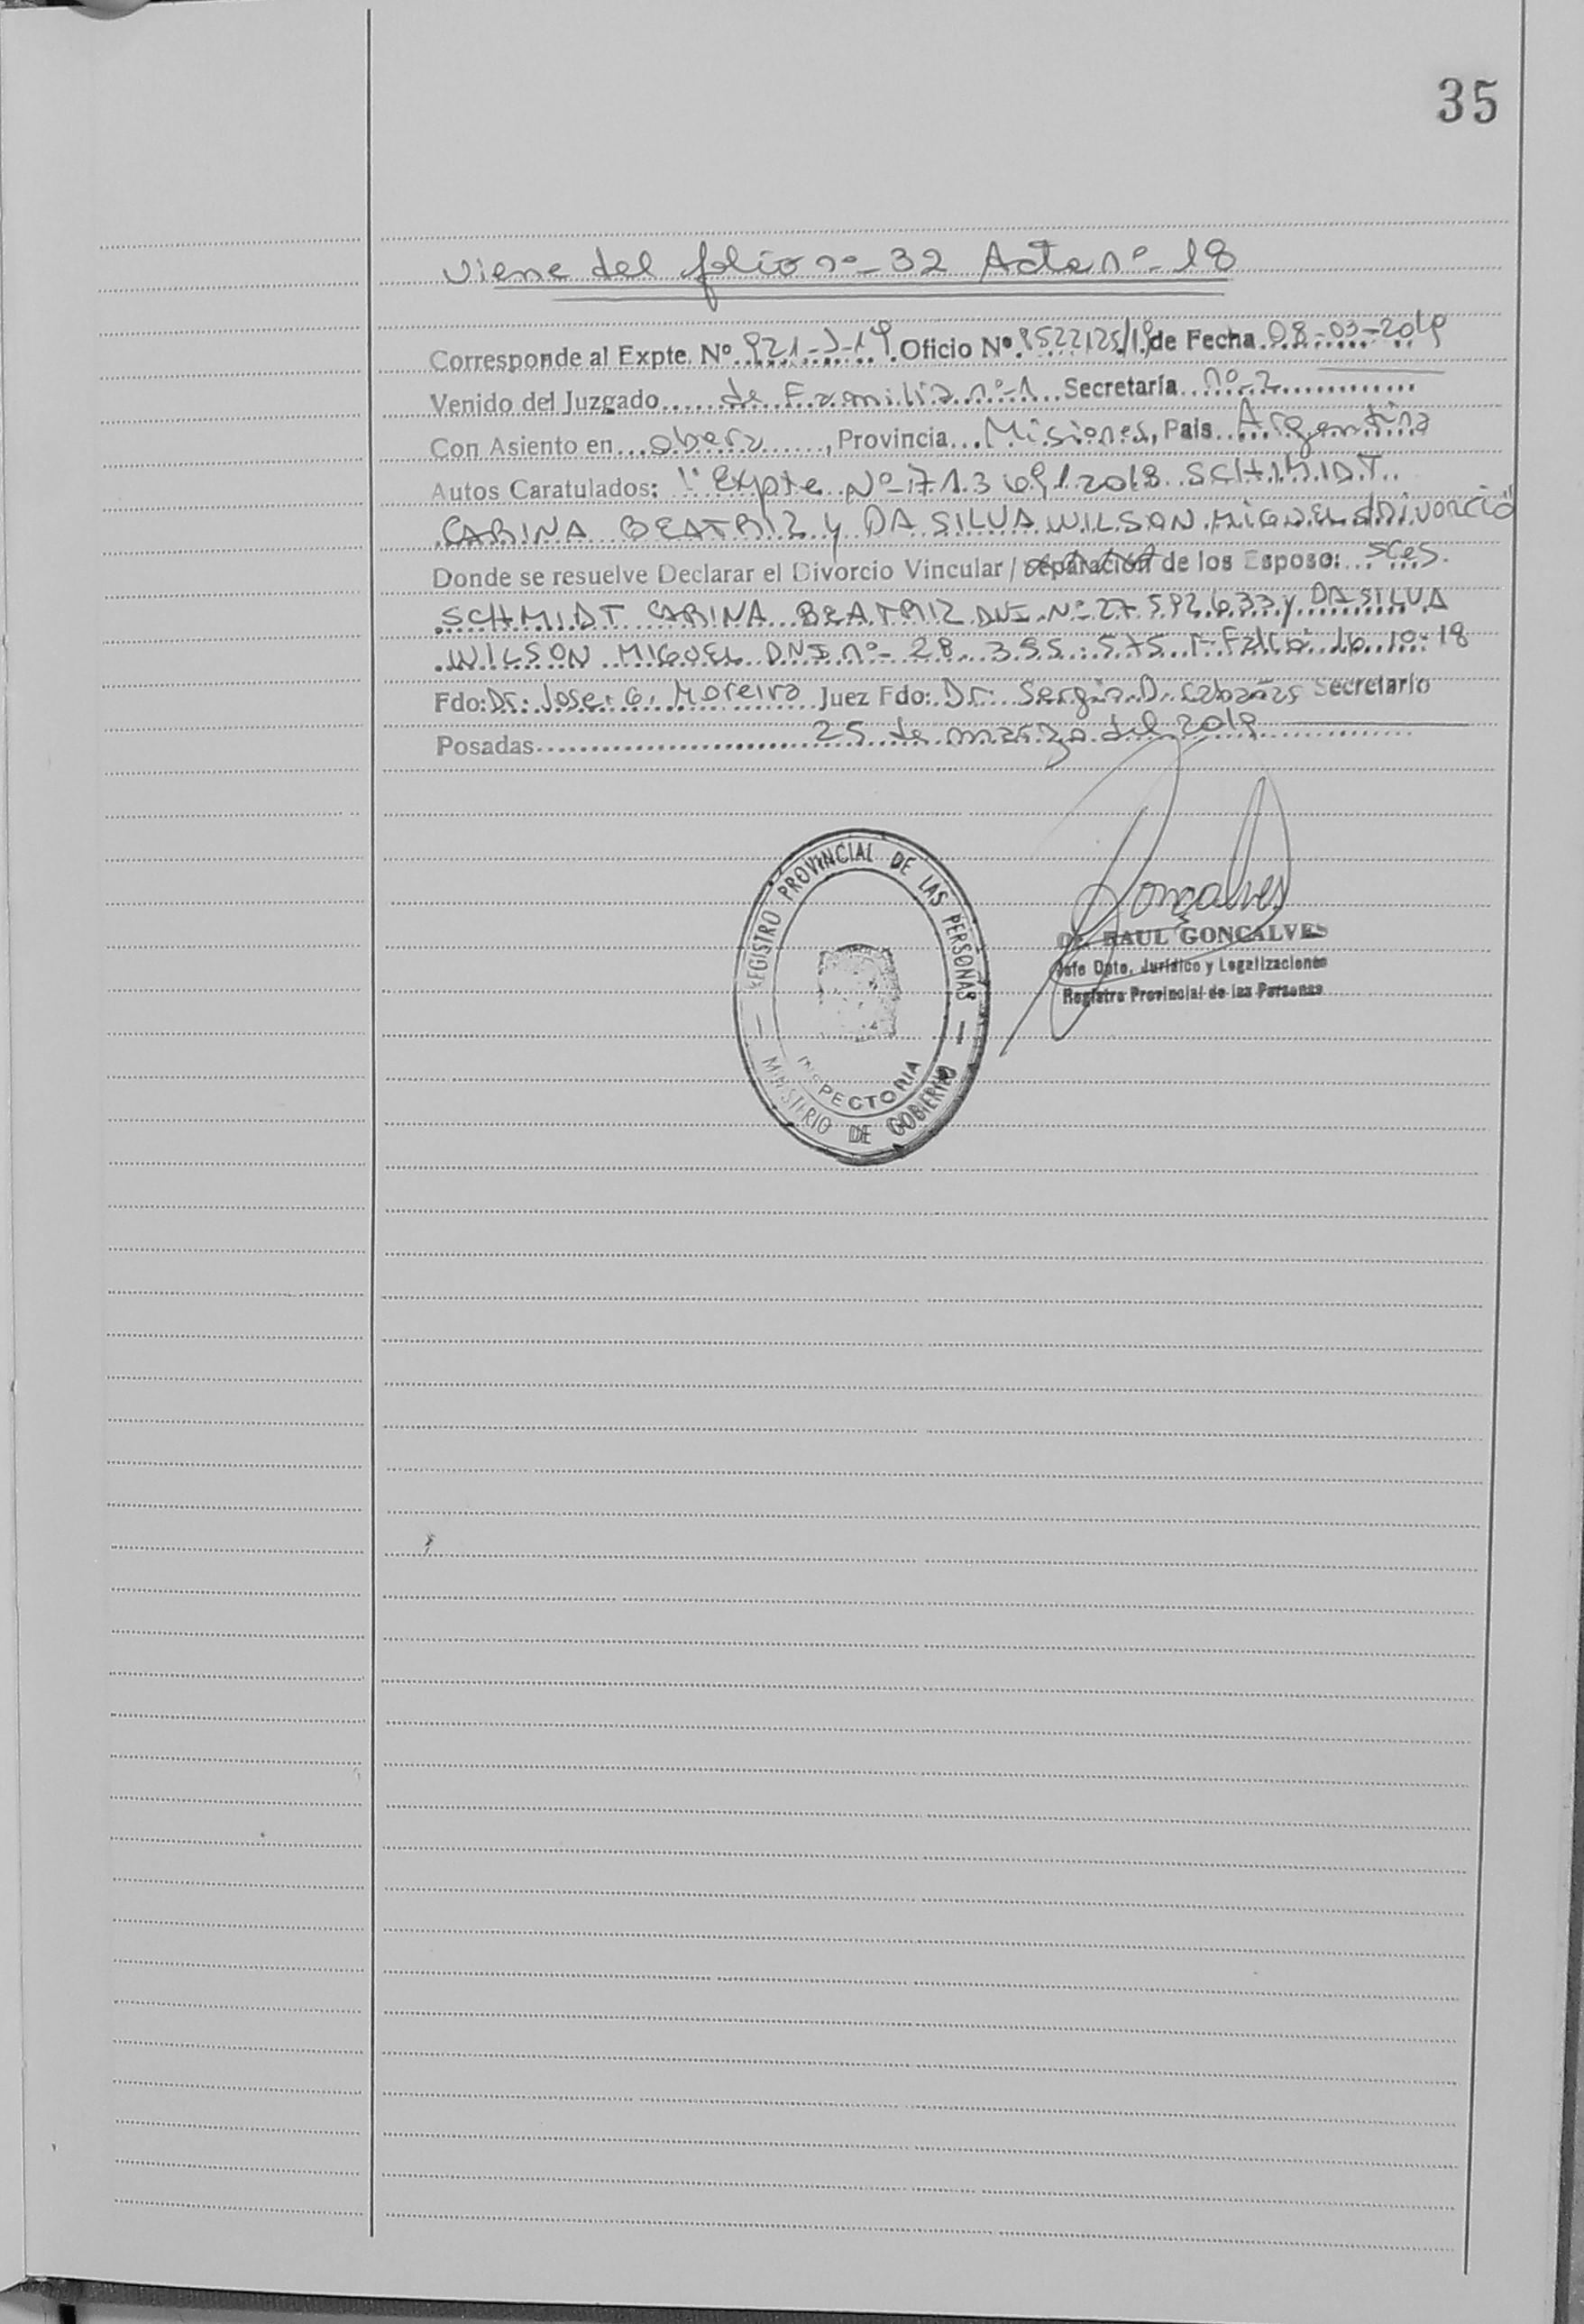 35
Viene del folio nº-32 Acta nº-18
Corresponde al Expte. Nº 921-J-19 Oficio Nº 8522125/19 de Fecha 08-03-2019
Venido del Juzgado de Familia nº-1 Secretaría nº-2
Con Asiento en Obera, Provincia Misiones, Pais Argentina
Autos Caratulados: "Expte Nº-71369/2018 SCHIMIDT
CARINA BEATRIZ y DA SILVA WILSON MIGUEL s/Divorcio"
Donde se resuelve Declarar el Divorcio Vincular / separación de los Esposo: sres.
SCHMIDT CARINA BEATRIZ DNI Nº-27.592.633 y DA SILVA
WILSON MIGUEL DNI nº-28.395.575 16.10.18
Fdo: Dr. Jose. G. Moreira Juez Fdo: Dr. Sergio D. Cabañas Secretario
Posadas 25 de marzo del 2019
REGISTRO PROVINCIAL DE LAS PERSONAS
INSPECTORIA
MINISTERIO DE GOBIERNO
Gonçalves
RAUL GONCALVES
Jefe Dpto. Jurídico y Legalizaciones
Registro Provincial de las Personas